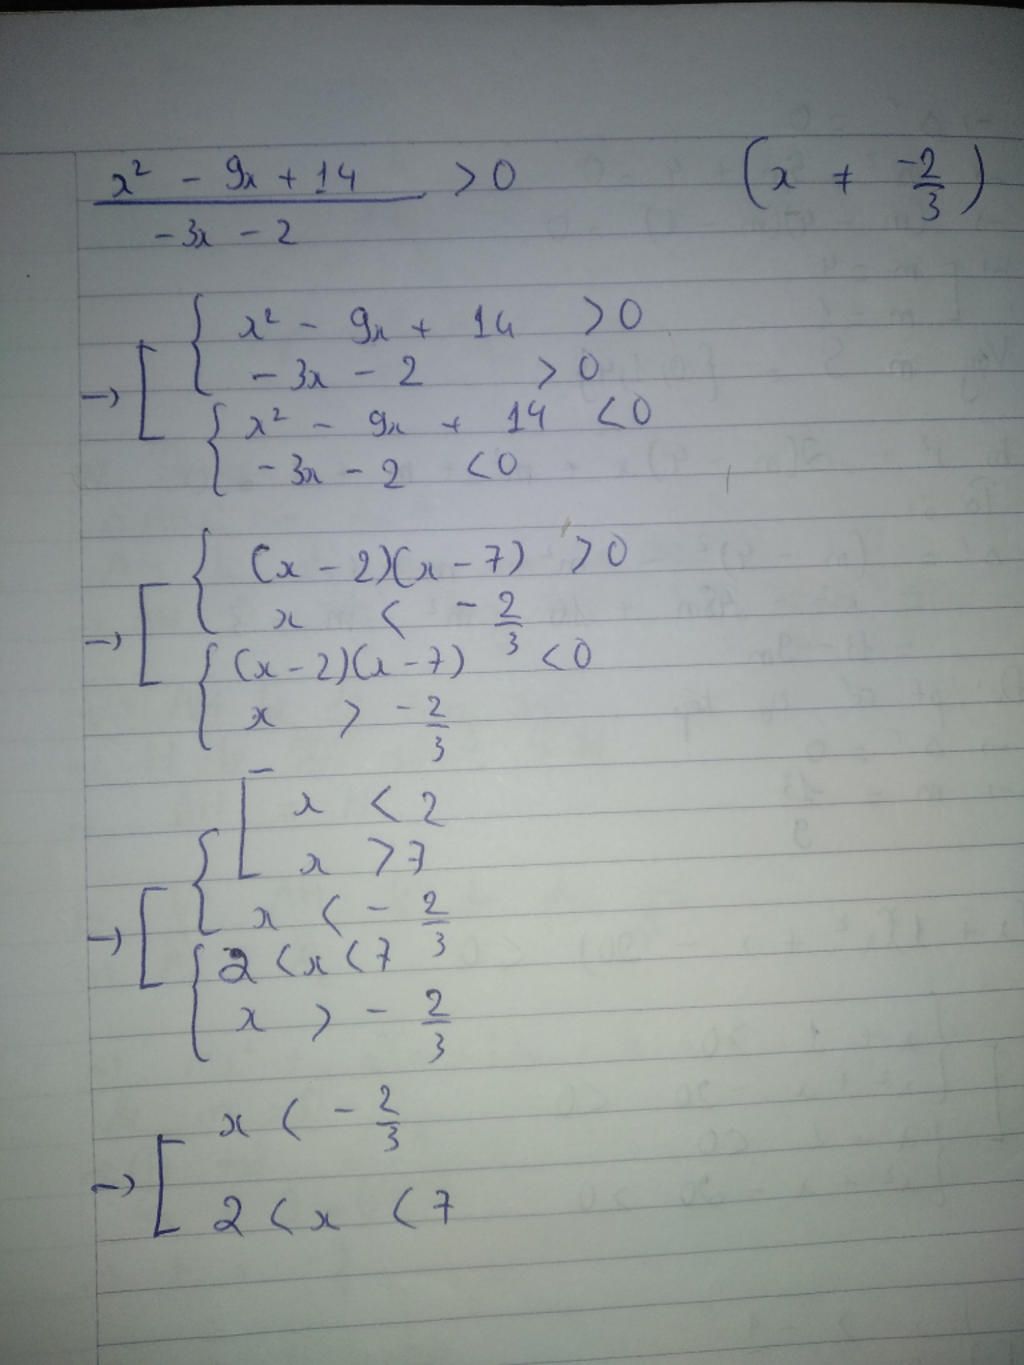 x² - 9x + 14 > 0 (x ≠ -2/3)
-3x - 2
→ [ { x² - 9x + 14 > 0
-3x - 2 > 0
{ x² - 9x + 14 < 0
-3x - 2 < 0
→ [ { (x - 2)(x - 7) > 0
x < - 2/3
{ (x - 2)(x - 7) < 0
x > - 2/3
→ [ { [ x < 2
x > 7
x < - 2/3
{ 2 < x < 7
x > - 2/3
→ [ x < - 2/3
2 < x < 7